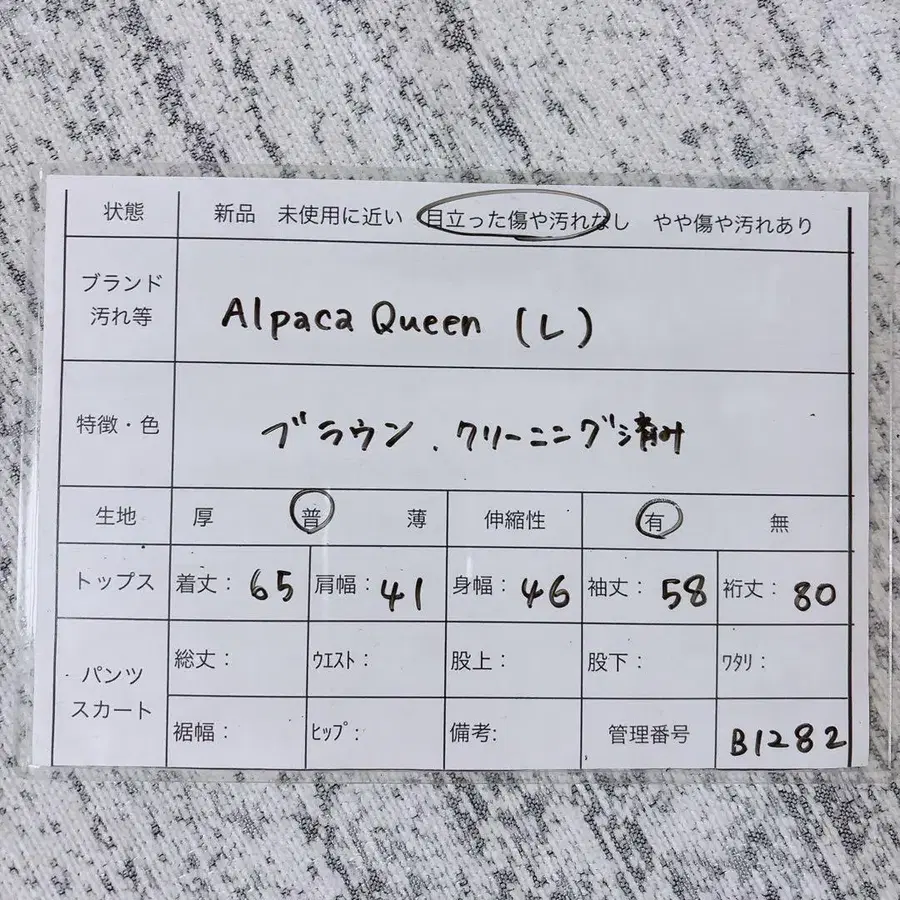 状態 新品 未使用に近い 目立った傷や汚れなし やや傷や汚れあり
ブランド
汚れ等
Alpaca Queen (L)
特徴・色 ブラウン、クリーニング済み
生地 厚 普 薄 伸縮性 有 無
トップス 着丈: 65 肩幅: 41 身幅: 46 袖丈: 58 裄丈: 80
パンツ
スカート
総丈: ウエスト: 股上: 股下: ワタリ:
裾幅: ヒップ: 備考: 管理番号 B1282